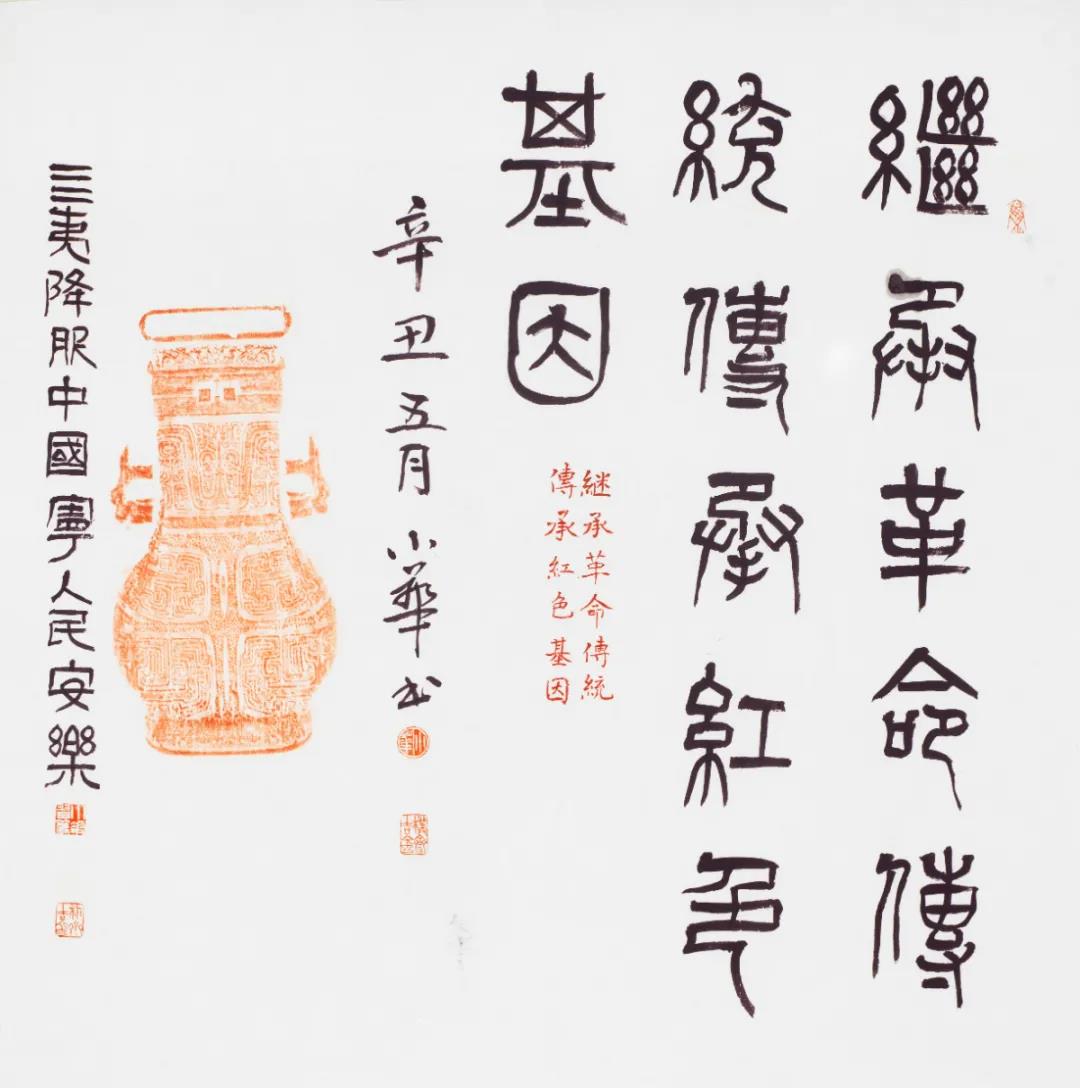 繼承革命傳
統傳承紅色
基因
継承革命傳統
傳承紅色基因
辛丑五月小華书
亖夷降服中國寧人民安樂